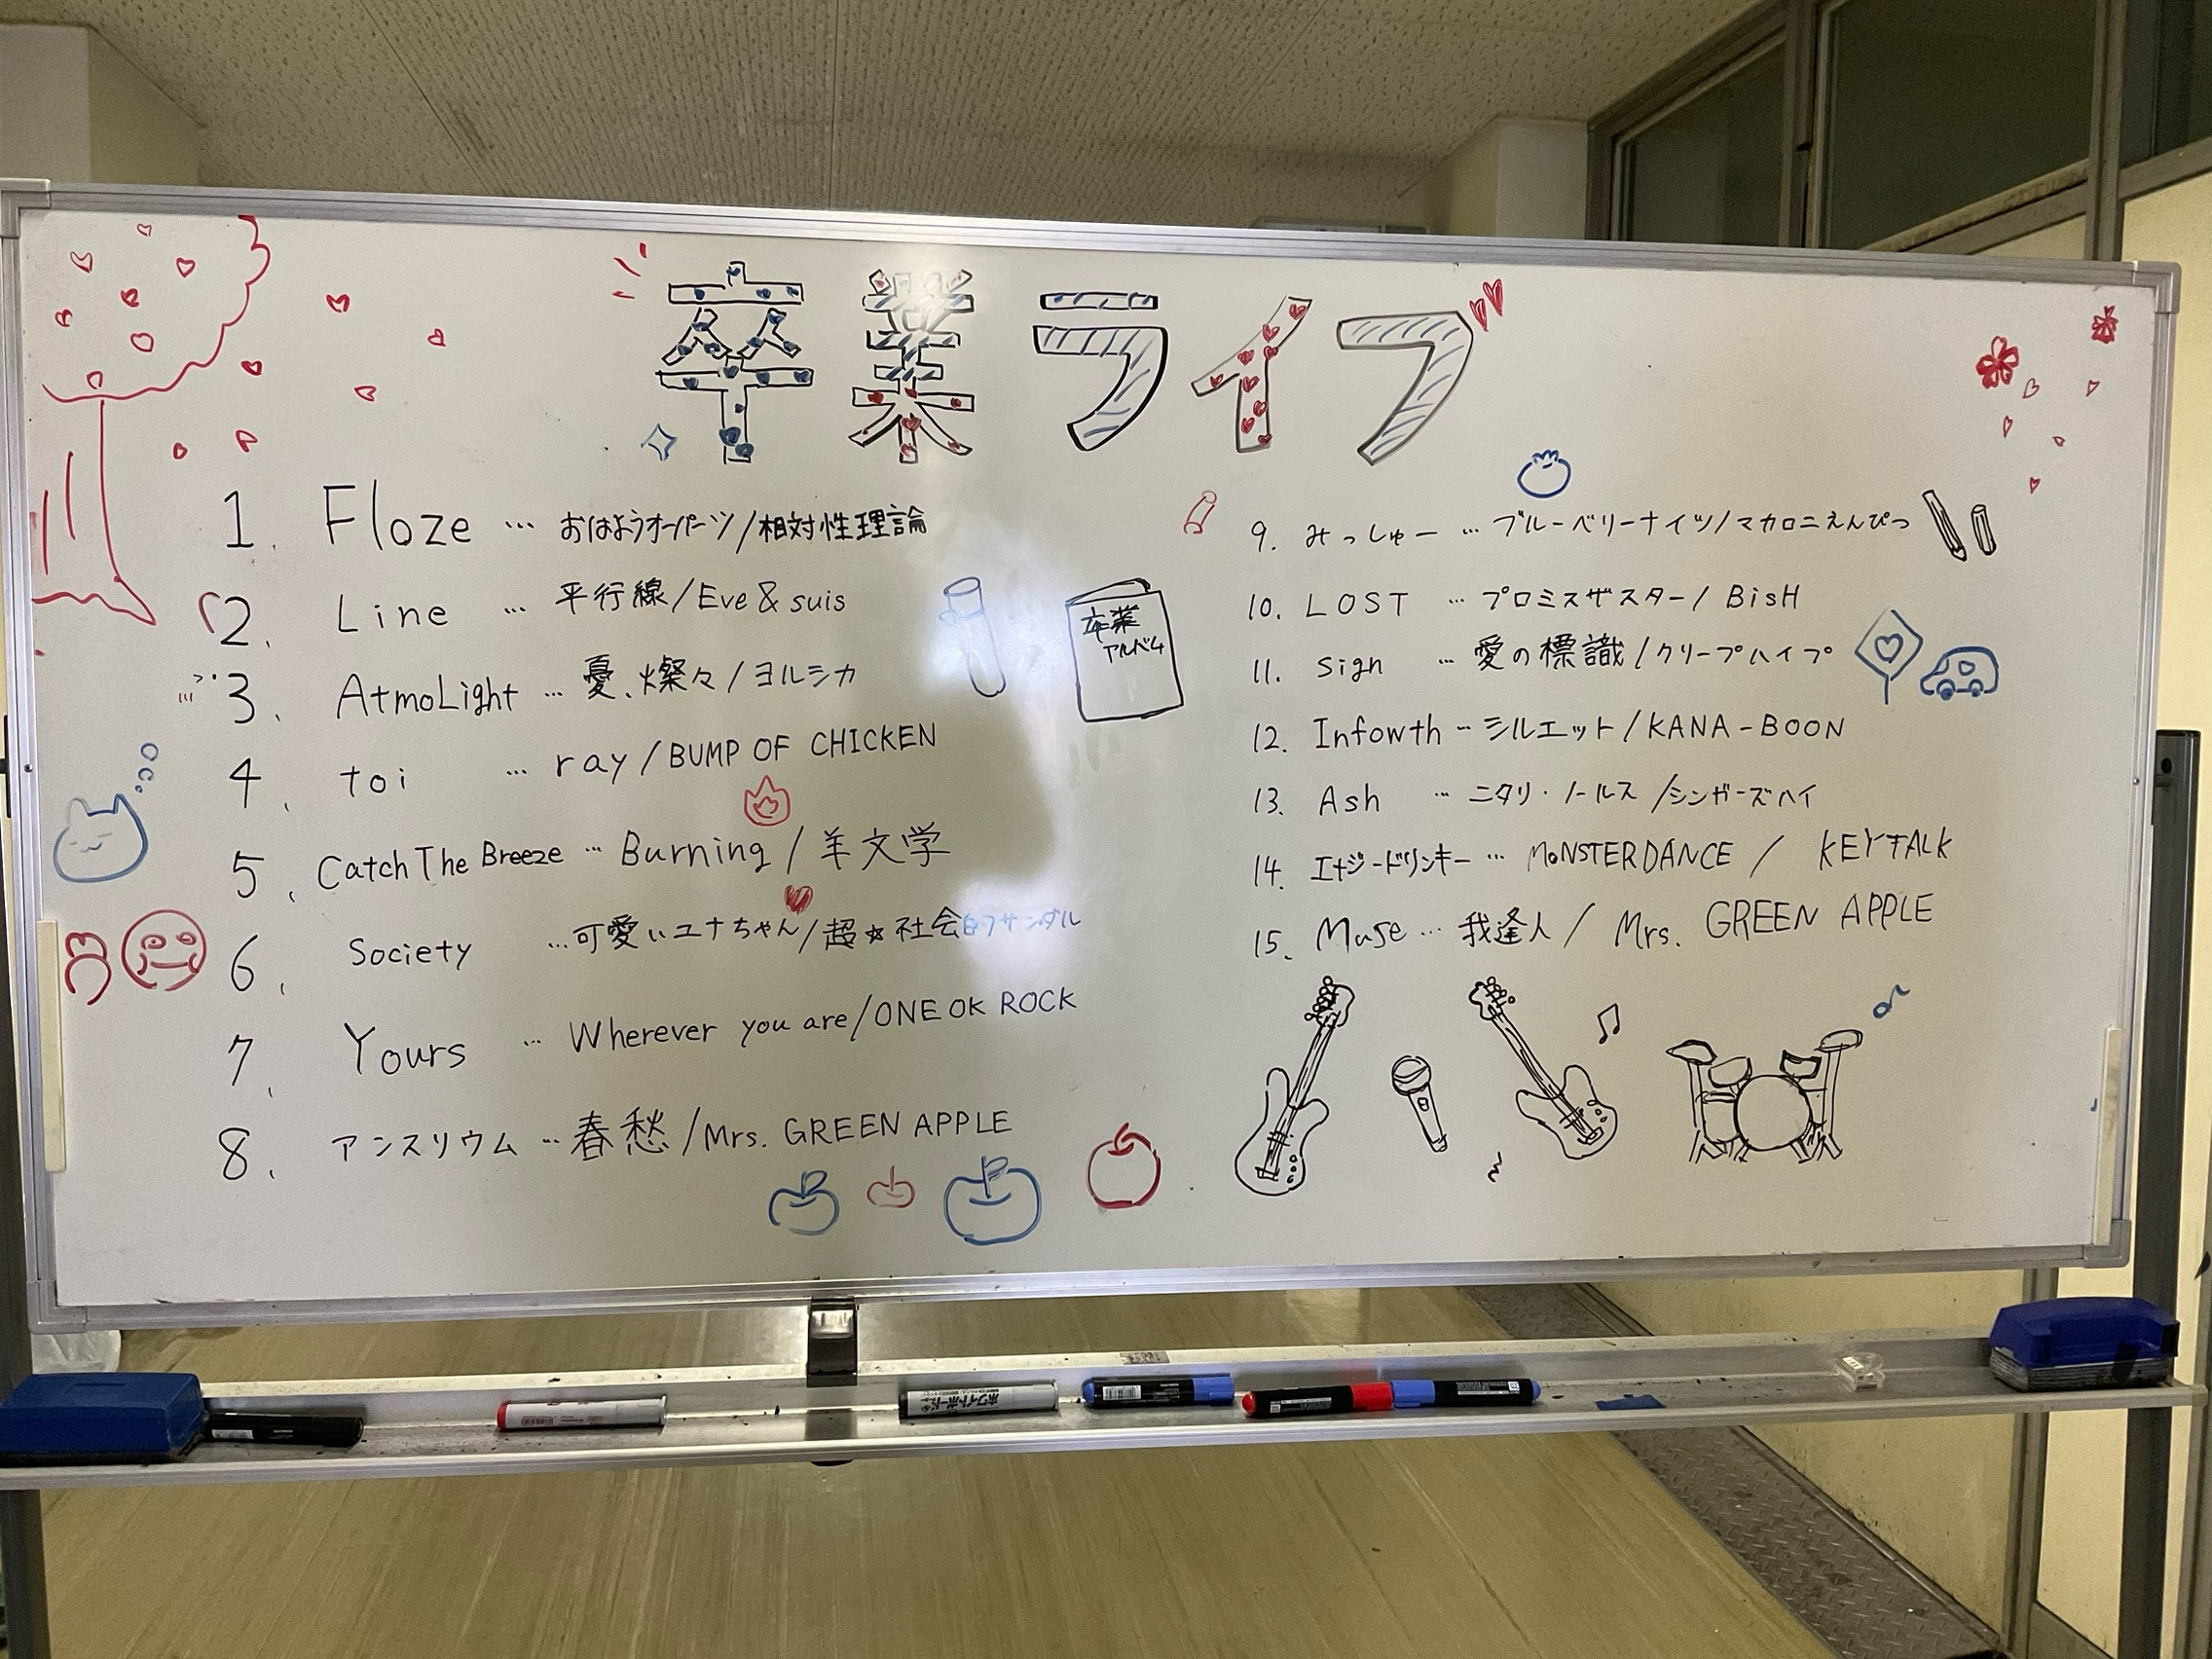 卒業ライブ
1. Floze … おはようオーパーツ/相対性理論
2. Line … 平行線/Eve & suis
3. AtmoLight … 憂、燦々/ヨルシカ
4. toi … ray/BUMP OF CHICKEN
5. Catch The Breeze … Burning/羊文学
6. Society … 可愛いユナちゃん/超☆社会的サンダル
7. Yours … Wherever you are/ONE OK ROCK
8. アンスリウム … 春愁/Mrs. GREEN APPLE
卒業
アルバム
9. みっしゅー … ブルーベリーナイツ/マカロニえんぴつ
10. LOST … プロミスザスター/BisH
11. sign … 愛の標識/クリープハイプ
12. Infowth … シルエット/KANA-BOON
13. Ash … ニタリ・ノールス/シンガーズハイ
14. エナジードリンキー … MONSTER DANCE / KEYTALK
15. Muse … 我逢人/Mrs. GREEN APPLE